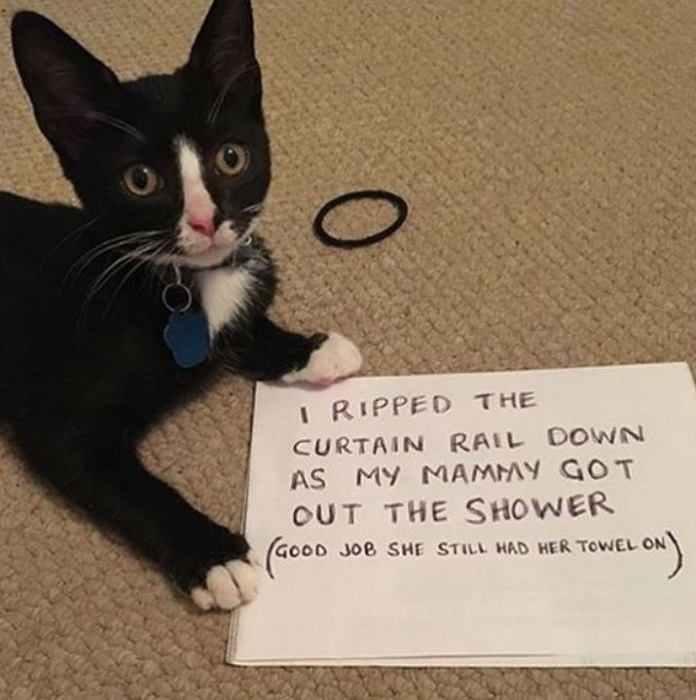 I RIPPED THE
CURTAIN RAIL DOWN
AS MY MAMMY GOT
OUT THE SHOWER
(GOOD JOB SHE STILL HAD HER TOWEL ON)